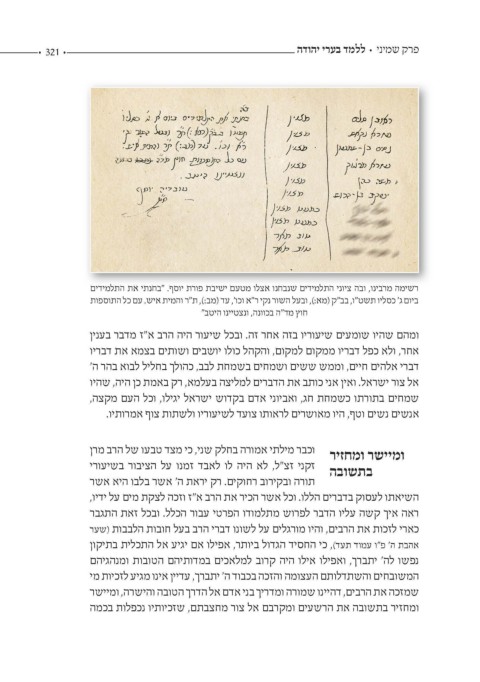 פרק שמיני • ללמד בערי יהודה • 321 •
ראובן
מצוין
מצוין
נסים בן-
מצוין
מצוין
משה כהן
מצוין
יעקב בן-
מצוין
כמעט מצוין
כמעט מצוין
טוב מאד
טוב מאד
בחנתי את התלמידים ביום ג' כסליו
עובדיה יוסף
רשימה מרבינו, ובה ציוני התלמידים שנבחנו אצלו מטעם ישיבת פורת יוסף. "בחנתי את התלמידים
ביום ג' כסליו תשט"ו, בב"ק (מא:), ובעל השור נקי ר"א וכו', עד (מב:), ת"ר והמית איש. עם כל התוספות
חוץ מד"ה בכוונה, ונצטיינו היטב"
ומהם שהיו שומעים שיעוריו בזה אחר זה. ובכל שיעור היה הרב א"ז מדבר בענין
אחר, ולא כפל דבריו ממקום למקום, והקהל כולו יושבים ושותים בצמא את דבריו
דברי אלהים חיים, וממש ששים ושמחים בשמחת לבב, כהולך בחליל לבוא בהר ה'
אל צור ישראל. ואין אני כותב את הדברים למליצה בעלמא, רק באמת כן היה, שהיו
שמחים בתורתו כשמחת חג, ואביוני אדם בקדוש ישראל יגילו, וכל העם מקצה,
אנשים נשים וטף, היו מאושרים לראותו צועד לשיעוריו ולשתות צוף אמרותיו.
ומיישר ומחזיר
בתשובה
וכבר מילתי אמורה בחלק שני, כי מצד טבעו של הרב מרן
זקני זצ"ל, לא היה לו לאבד זמנו על הציבור בשיעורי
תורה ובקירוב רחוקים. רק יראת ה' אשר בלבו היא אשר
השיאתו לעסוק בדברים הללו. וכל אשר הכיר את הרב א"ז וזכה לצקת מים על ידיו,
ראה איך קשה עליו הדבר לפרוש מתלמודו הפרטי עבור הכלל. ובכל זאת התגבר
כארי לזכות את הרבים, והיו מורגלים על לשונו דברי הרב בעל חובות הלבבות (שער
אהבת ה' פ"ו עמוד תעד), כי החסיד הגדול ביותר, אפילו אם יגיע אל התכלית בתיקון
נפשו לה' יתברך, ואפילו אילו היה קרוב למלאכים במדותיהם הטובות ומנהגיהם
המשובחים והשתדלותם העצומה והזכה בכבוד ה' יתברך, עדיין אינו מגיע לזכיות מי
שמזכה את הרבים, דהיינו שמורה ומדריך בני אדם אל הדרך הטובה והישרה, ומיישר
ומחזיר בתשובה את הרשעים ומקרבם אל צור מחצבתם, שזכיותיו נכפלות בכמה